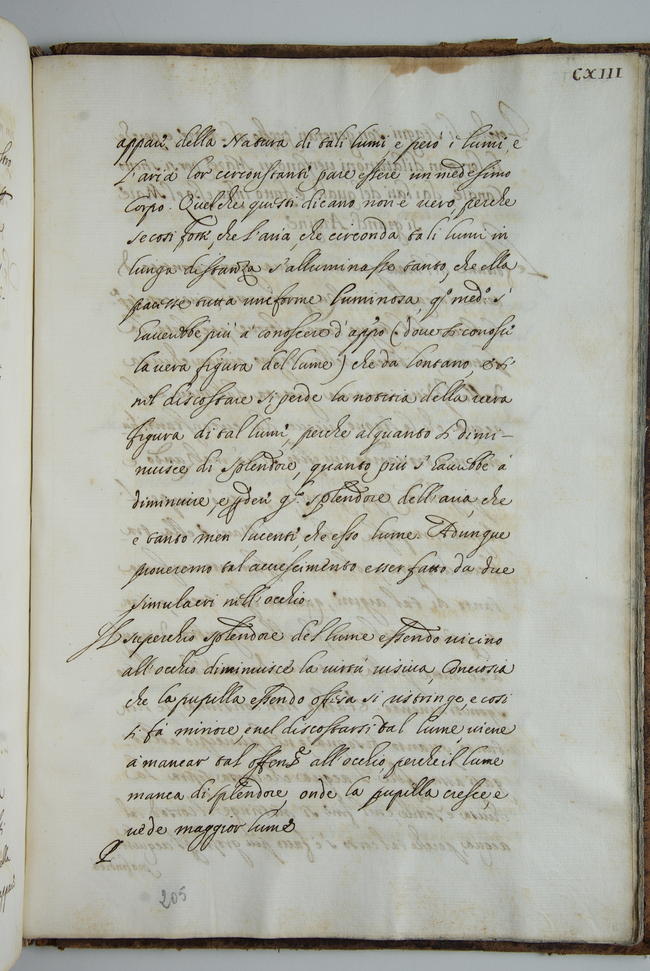 CXIII
appari della Natura di tali lumi e però i lumi, e
l'aria lor circonstanti pare essere un medesimo
Corpo. Quel che questi dicano non è vero, perche
se così fosse, che l'aria, che circonda tali lumi in
lunga distanza s'alluminasse tanto, che ella
paresse tutta uniforme luminosa, qo. medo. si
haverebbe più a conoscere d'appo (dove si conosci
la vera figura del lume) che da lontano, e si
nel discostare si perde la notitia della vera
figura di tal lumi, perche alquanto si dimi-
nuisce di splendore, quanto più s'haverebbe a
diminuire, e splendore dell'aria, che
e tanto men lucenti, che esso lume. Adunque
proveremo tal accrescimento esser fatto da due
simulacri nell'occhio
Il superchio splendore del lume essendo vicino
all'occhio diminuisce la virtù visiva, Conciosia
che la pupilla essendo offesa si ristringe, e così
si fà minore, e nel discostarsi dal lume, viene
a mancar tal offensa all'occhio perche il lume
manca di splendore, onde la pupilla cresce, e
vede maggior lume
205